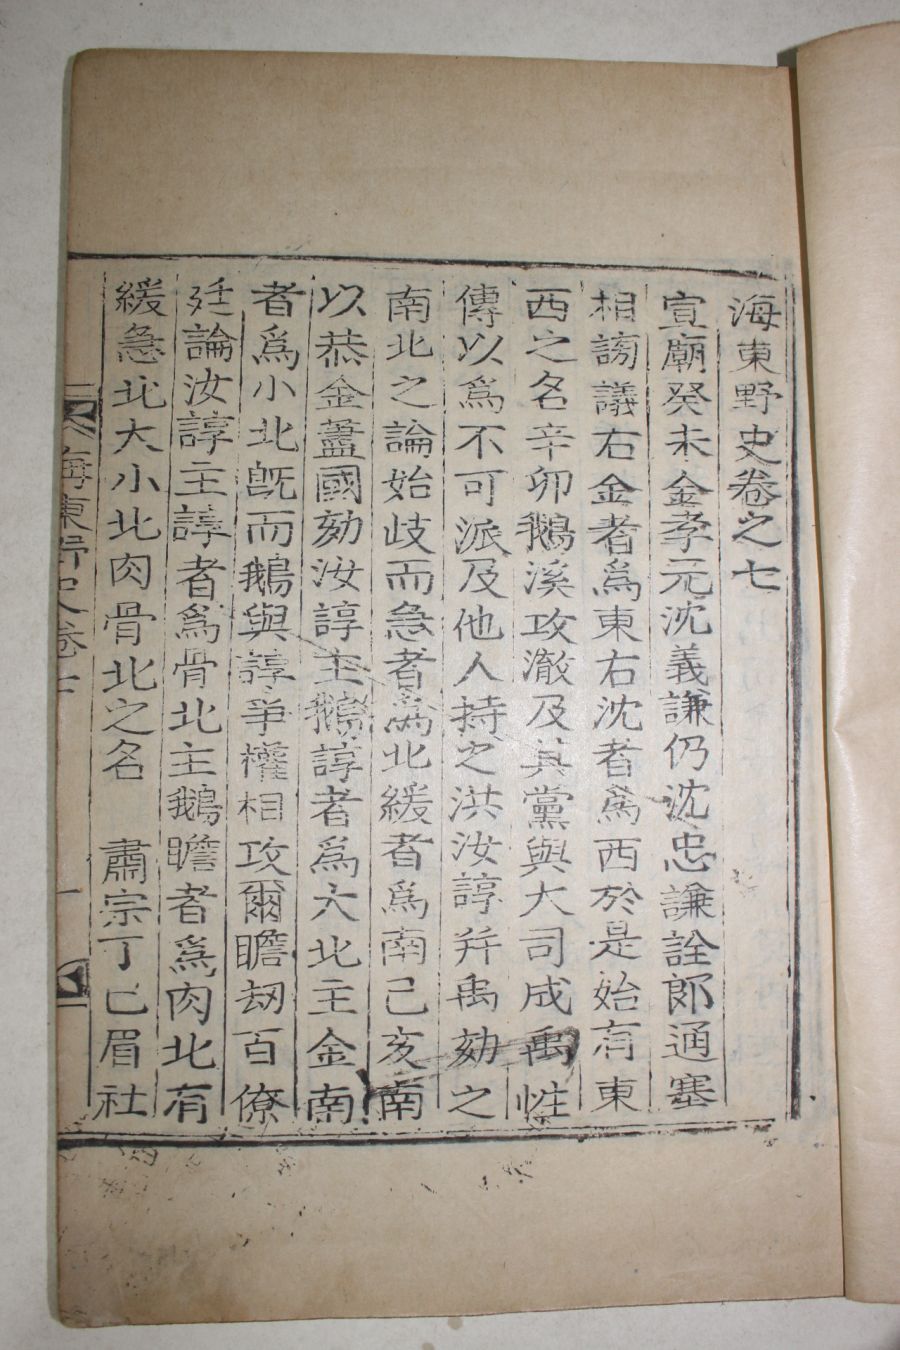 海東野史卷之七
宣廟癸未金孝元沈義謙仍沈忠謙詮郞通塞
相謗議右金者爲東右沈者爲西於是始有東
西之名辛卯鵝溪攻澈及其黨與大司成禹性
傳以爲不可派及他人持之洪汝諄并禹劾之
南北之論始歧而急者爲北緩者爲南己亥南
以恭金藎國劾汝諄主鵝諄者爲大北主金南
者爲小北旣而鵝與諄爭權相攻爾瞻刼百僚
廷論汝諄主諄者爲骨北主鵝瞻者爲肉北有
緩急北大小北肉骨北之名 肅宗丁巳眉社
海東野史卷七
一